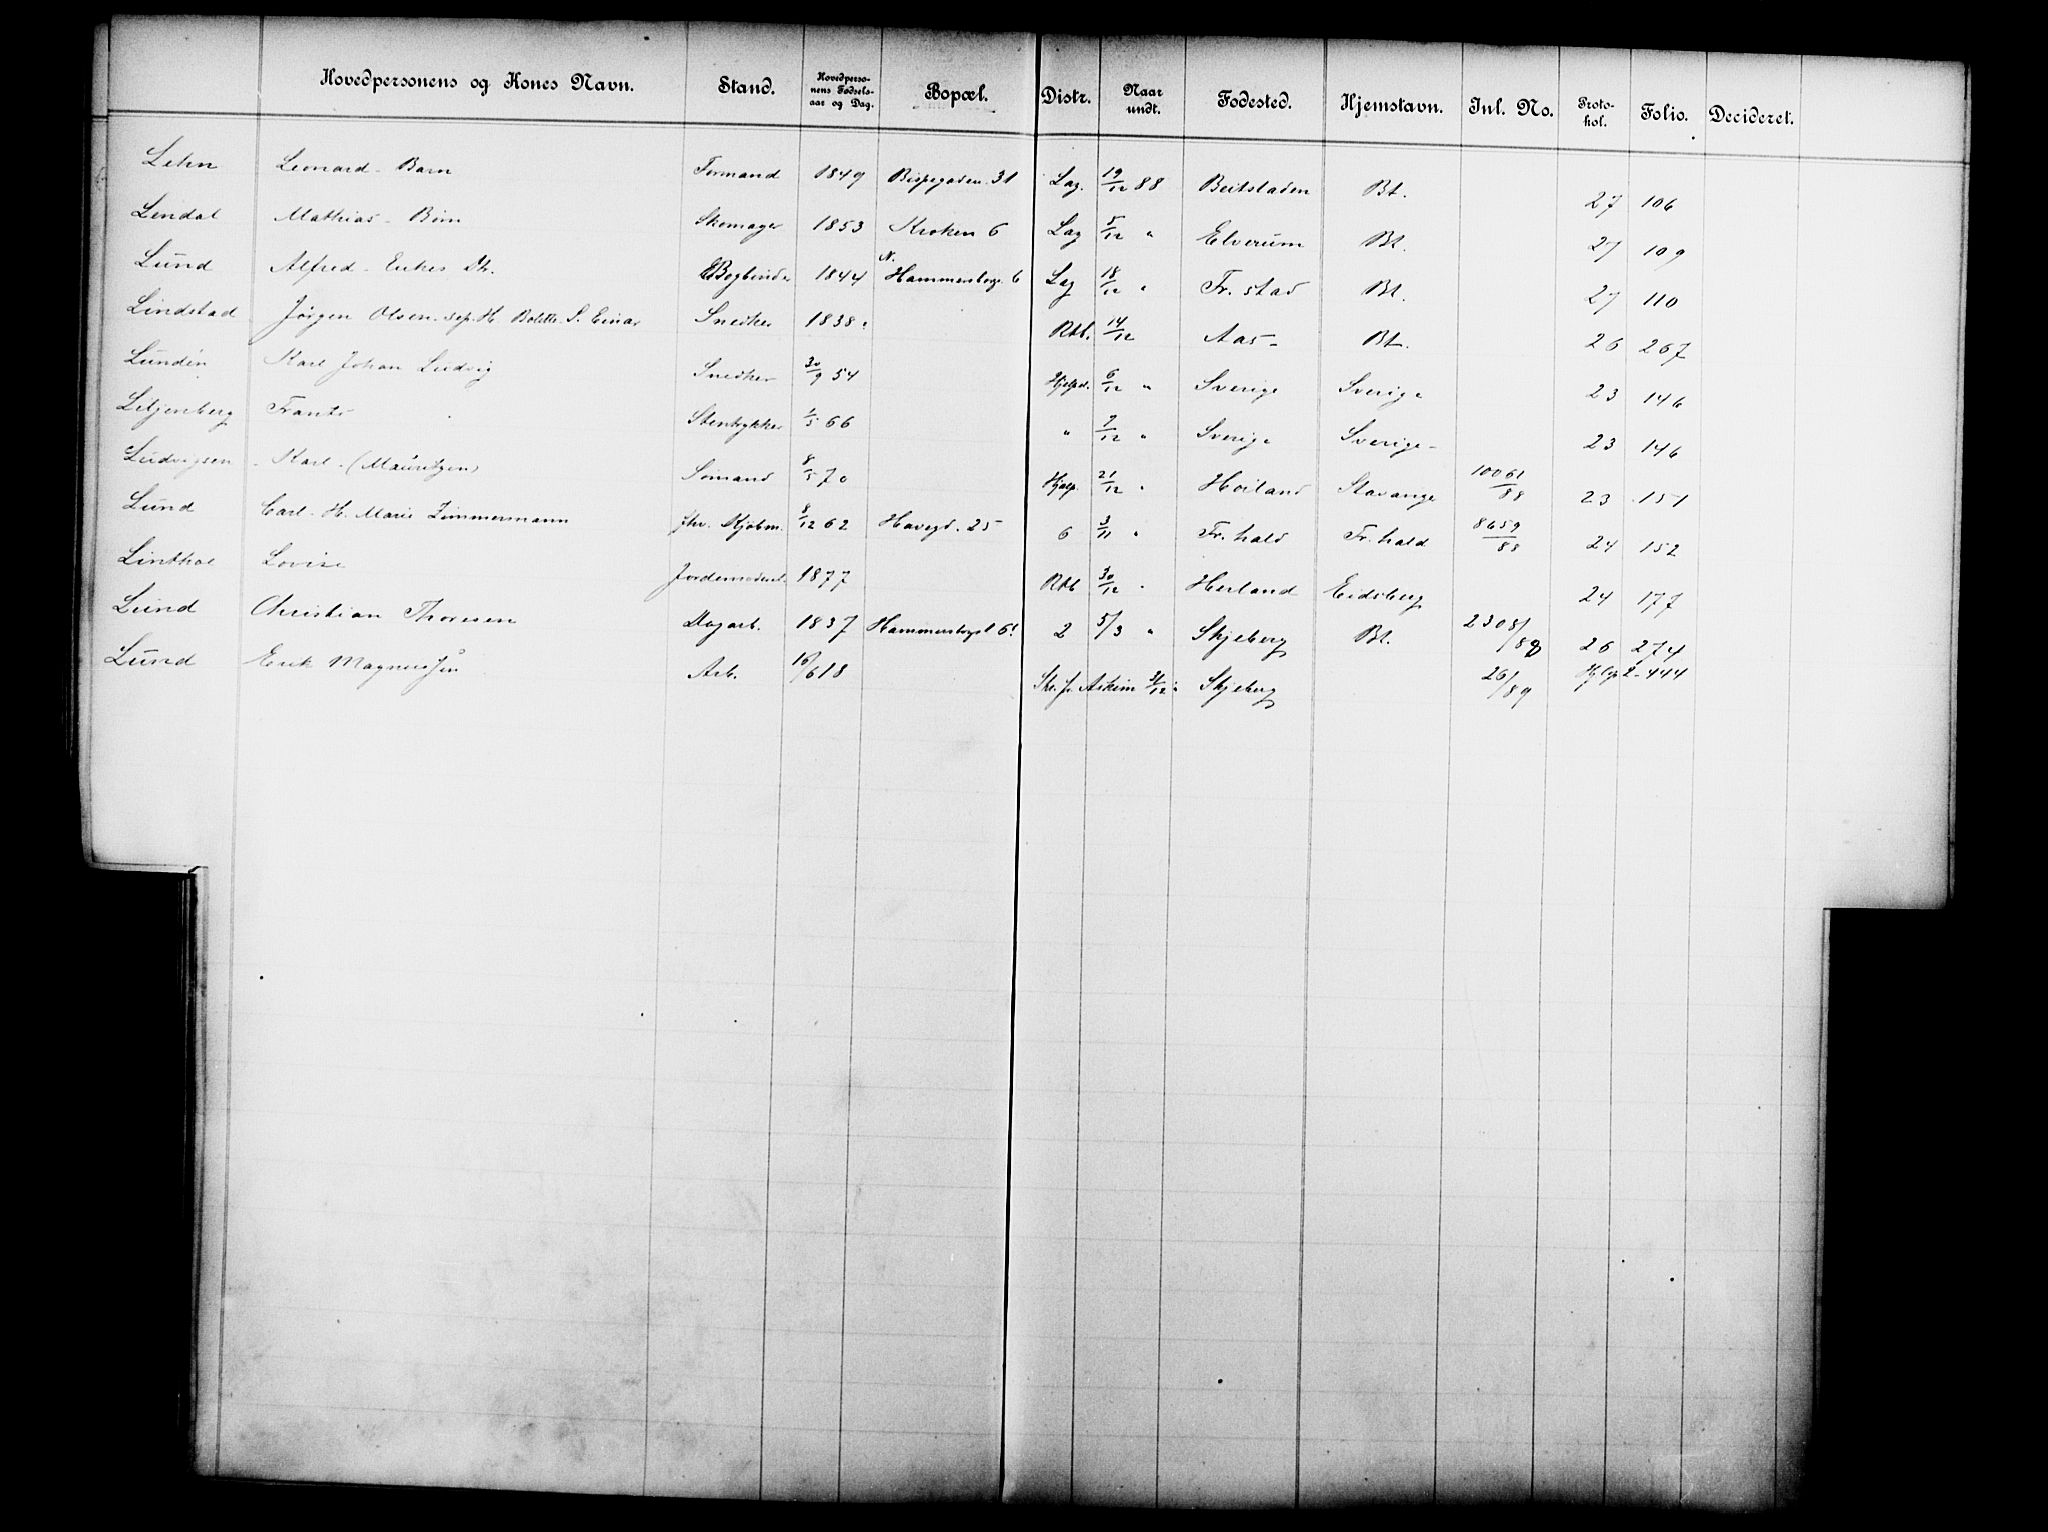 Hovedpersonens og Kones Navn. Stand. Hovedpersonens Fødselsaar og Dag. Bopæl. Distr. Naar undt. Fødested. Hjemstavn. Inl. No. Protokol. Folio. Decideret.
Lehn Leonard - Barn Formand 1849 Bispegaden 31 Lag. 19/12 88 Beitstaden Bt. 27 106
Lendal Mathias - Børn Skomager 1853 Kroken 6 Lag 5/12 " Elverum Bt. 27 109
Lund Alfred - Enkes Dt. Bogbinder 1844 N. Hammersborg 6 Lag 18/12 " Fr. stad Bt. 27 110
Lindstad Jørgen Olsen sep. H. Bolette S. Einar Snedker 1838 Rtb. 14/12 Aas - Bt. 26 267
Lundén Karl Johan Ludvig Snedker 30/9 54 Hjelpd. 6/12 " Sverige Sverige 23 146
Liljenberg Frants Stentrykker 1/5 66 " 7/12 " Sverige Sverige - 23 146
Ludvigsen Karl - (Mauritzen) Sømand 8/5 70 Hjelp. 21/12 " Høiland Stavanger 10061/88 23 151
Lund Carl - H. Marie Zimmermann fhv. Kjøbm. 8/12 62 Havegd. 25 6 3/11 " Fr. hald Fr. hald 8659/88 24 152
Linthoe Lovise Jordemoderel. 1877 Rtb 30/12 " Herland Eidsberg 24 177
Lund Christian Thoresen Dagarb. 1837 Hammersbgt 61 2 5/3 " Skjeberg Bt. 2308/88 26 274
Lund Erik Magnussøn Arb. 16/6 18 Skr. fr. Askim 31/12 " Skjeberg 26/89 Hjlp 2 - 444